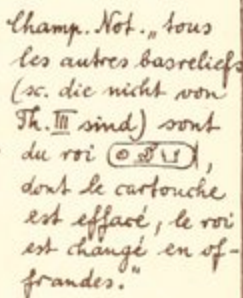 Champ. Not. „tous
les autres basreliefs
(sc. die nicht von
Th. III sind) sont
du roi
dont le cartouche
est effacé, le roi
est changé en of-
frandes."